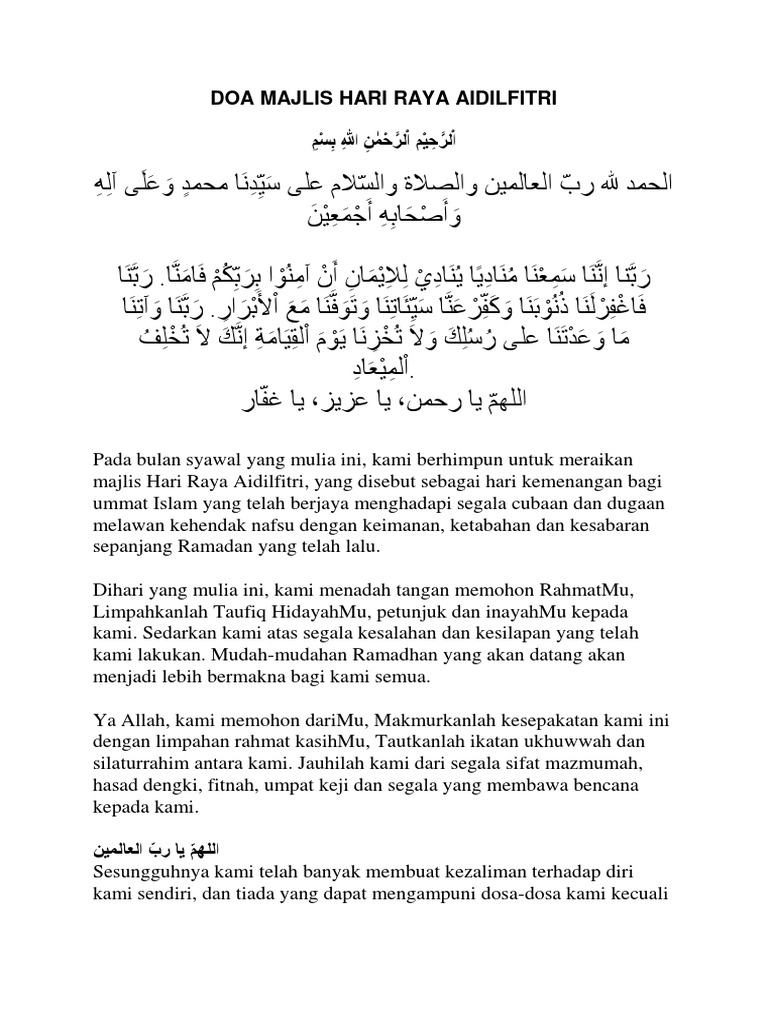 DOA MAJLIS HARI RAYA AIDILFITRI
اْلرَّحِيْم اْلرَّحْمٰنِ اللهِ بِسْمِ
الحمد لله ربّ العالمين والصلاة والسّلام على سَيِّدِنَا محمدٍ وَعَلَى آلِهِ
وَأَصْحَابِهِ أَجْمَعِيْنَ
رَبَّنَا إنَّنَا سَمِعْنَا مُنَادِيًا يُنَادِيْ لِلِايْمَانِ أَنْ آمِنُوْا بِرَبِّكُمْ فَامَنَّا. رَبَّنَا
فَاغْفِرْلَنَا ذُنُوْبَنَا وَكَفِّرْعَنَّا سَيِّئَاتِنَا وَتَوَفَّنَا مَعَ اْلأَبْرَارِ. رَبَّنَا وَآتِنَا
مَا وَعَدْتَنَا على رُسُلِكَ وَلاَ تُخْزِنَا يَوْمَ اْلقِيَامَةِ إنَّكَ لاَ تُخْلِفُ
اْلمِيْعَادِ.
اللهمّ يا رحمن، يا عزيز، يا غفّار
Pada bulan syawal yang mulia ini, kami berhimpun untuk meraikan
majlis Hari Raya Aidilfitri, yang disebut sebagai hari kemenangan bagi
ummat Islam yang telah berjaya menghadapi segala cubaan dan dugaan
melawan kehendak nafsu dengan keimanan, ketabahan dan kesabaran
sepanjang Ramadan yang telah lalu.
Dihari yang mulia ini, kami menadah tangan memohon RahmatMu,
Limpahkanlah Taufiq HidayahMu, petunjuk dan inayahMu kepada
kami. Sedarkan kami atas segala kesalahan dan kesilapan yang telah
kami lakukan. Mudah-mudahan Ramadhan yang akan datang akan
menjadi lebih bermakna bagi kami semua.
Ya Allah, kami memohon dariMu, Makmurkanlah kesepakatan kami ini
dengan limpahan rahmat kasihMu, Tautkanlah ikatan ukhuwwah dan
silaturrahim antara kami. Jauhilah kami dari segala sifat mazmumah,
hasad dengki, fitnah, umpat keji dan segala yang membawa bencana
kepada kami.
اللهمّ يا ربّ العالمين
Sesungguhnya kami telah banyak membuat kezaliman terhadap diri
kami sendiri, dan tiada yang dapat mengampuni dosa-dosa kami kecuali